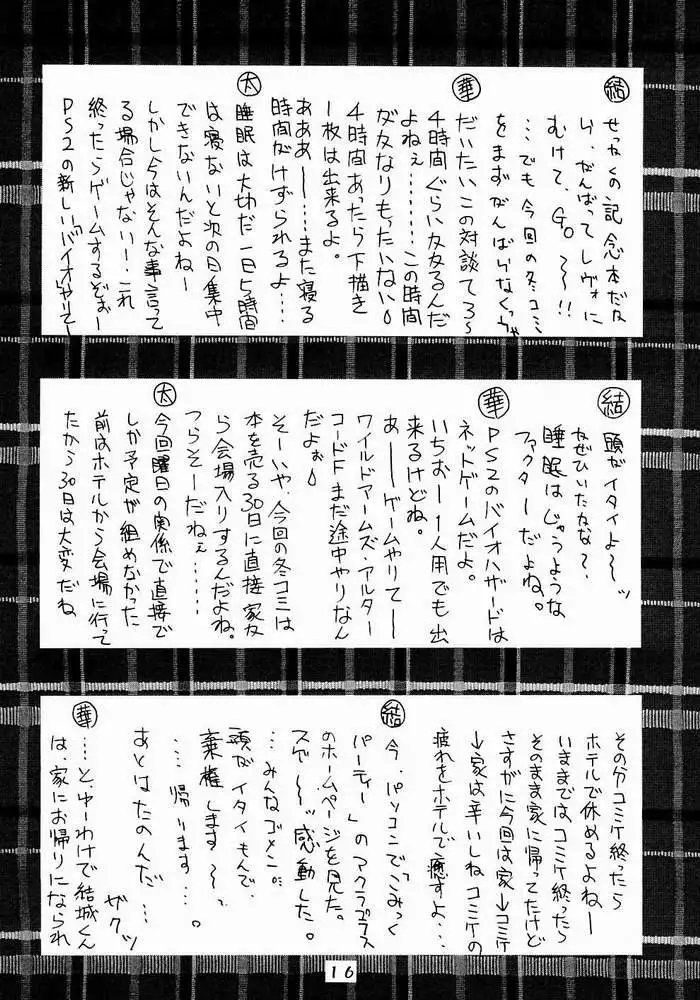 結
せっかくの記念本だな
い、がんばってレヴォに
むけて、GO〜〜!!
…でも今回の冬コミ
をまずがんばらなくっちゃ
華
だいたいこの対談てろ〜
4時間ぐらい
よねぇ……この時間
もったいない
4時間あったら下描き
1枚は出来るよ。
あああー……また寝る
時間がけずられるよ……
太
睡眠は大切だ一日5時間
は寝ないと次の日集中
できないんだよねー
しかし今はそんな事言って
る場合じゃないー!これ
終ったらゲームするぞぉー
PS2の新しいバイオやりてー
結
頭がイタイよ〜〜ッ
なぜひいたかな?、
睡眠はじゅうような
ファクターだよね。
華
PS2のバイオハザードは
ネットゲームだよ。
いちおー1人用でも出
来るけどね。
あーーゲームやりてーー
ワイルドアームズ・アルター
コードFまだ途中やりなん
だよぉ
そーいや、今回の冬コミは
本を売る30日に直接家
ら会場入りするんだよね。
つらそーだねぇ……
太
今回曜日の関係で直接で
しか予定が組めなかった
前はホテルから会場に行って
たから30日は大変だね
その分コミケ終ったら
ホテルで休めるよねー
いままではコミケ終ったら
そのまま家に帰ってたけど
さすがに今回は家→コミケ
→家は辛いしねコミケの
疲れをホテルで癒すよ…
結
今、パソコンで「こみっく
パーティー」のアクアプラス
のホームページを見た。
スゲ〜〜ッ感動した。
…みんなゴメン。
頭がイタイもんで、
棄権します〜〜ッ
…帰ります…。
あとはたのんだ…
ザクッ
華
…と、ゆーわけで結城くん
は、家にお帰りになられ
16